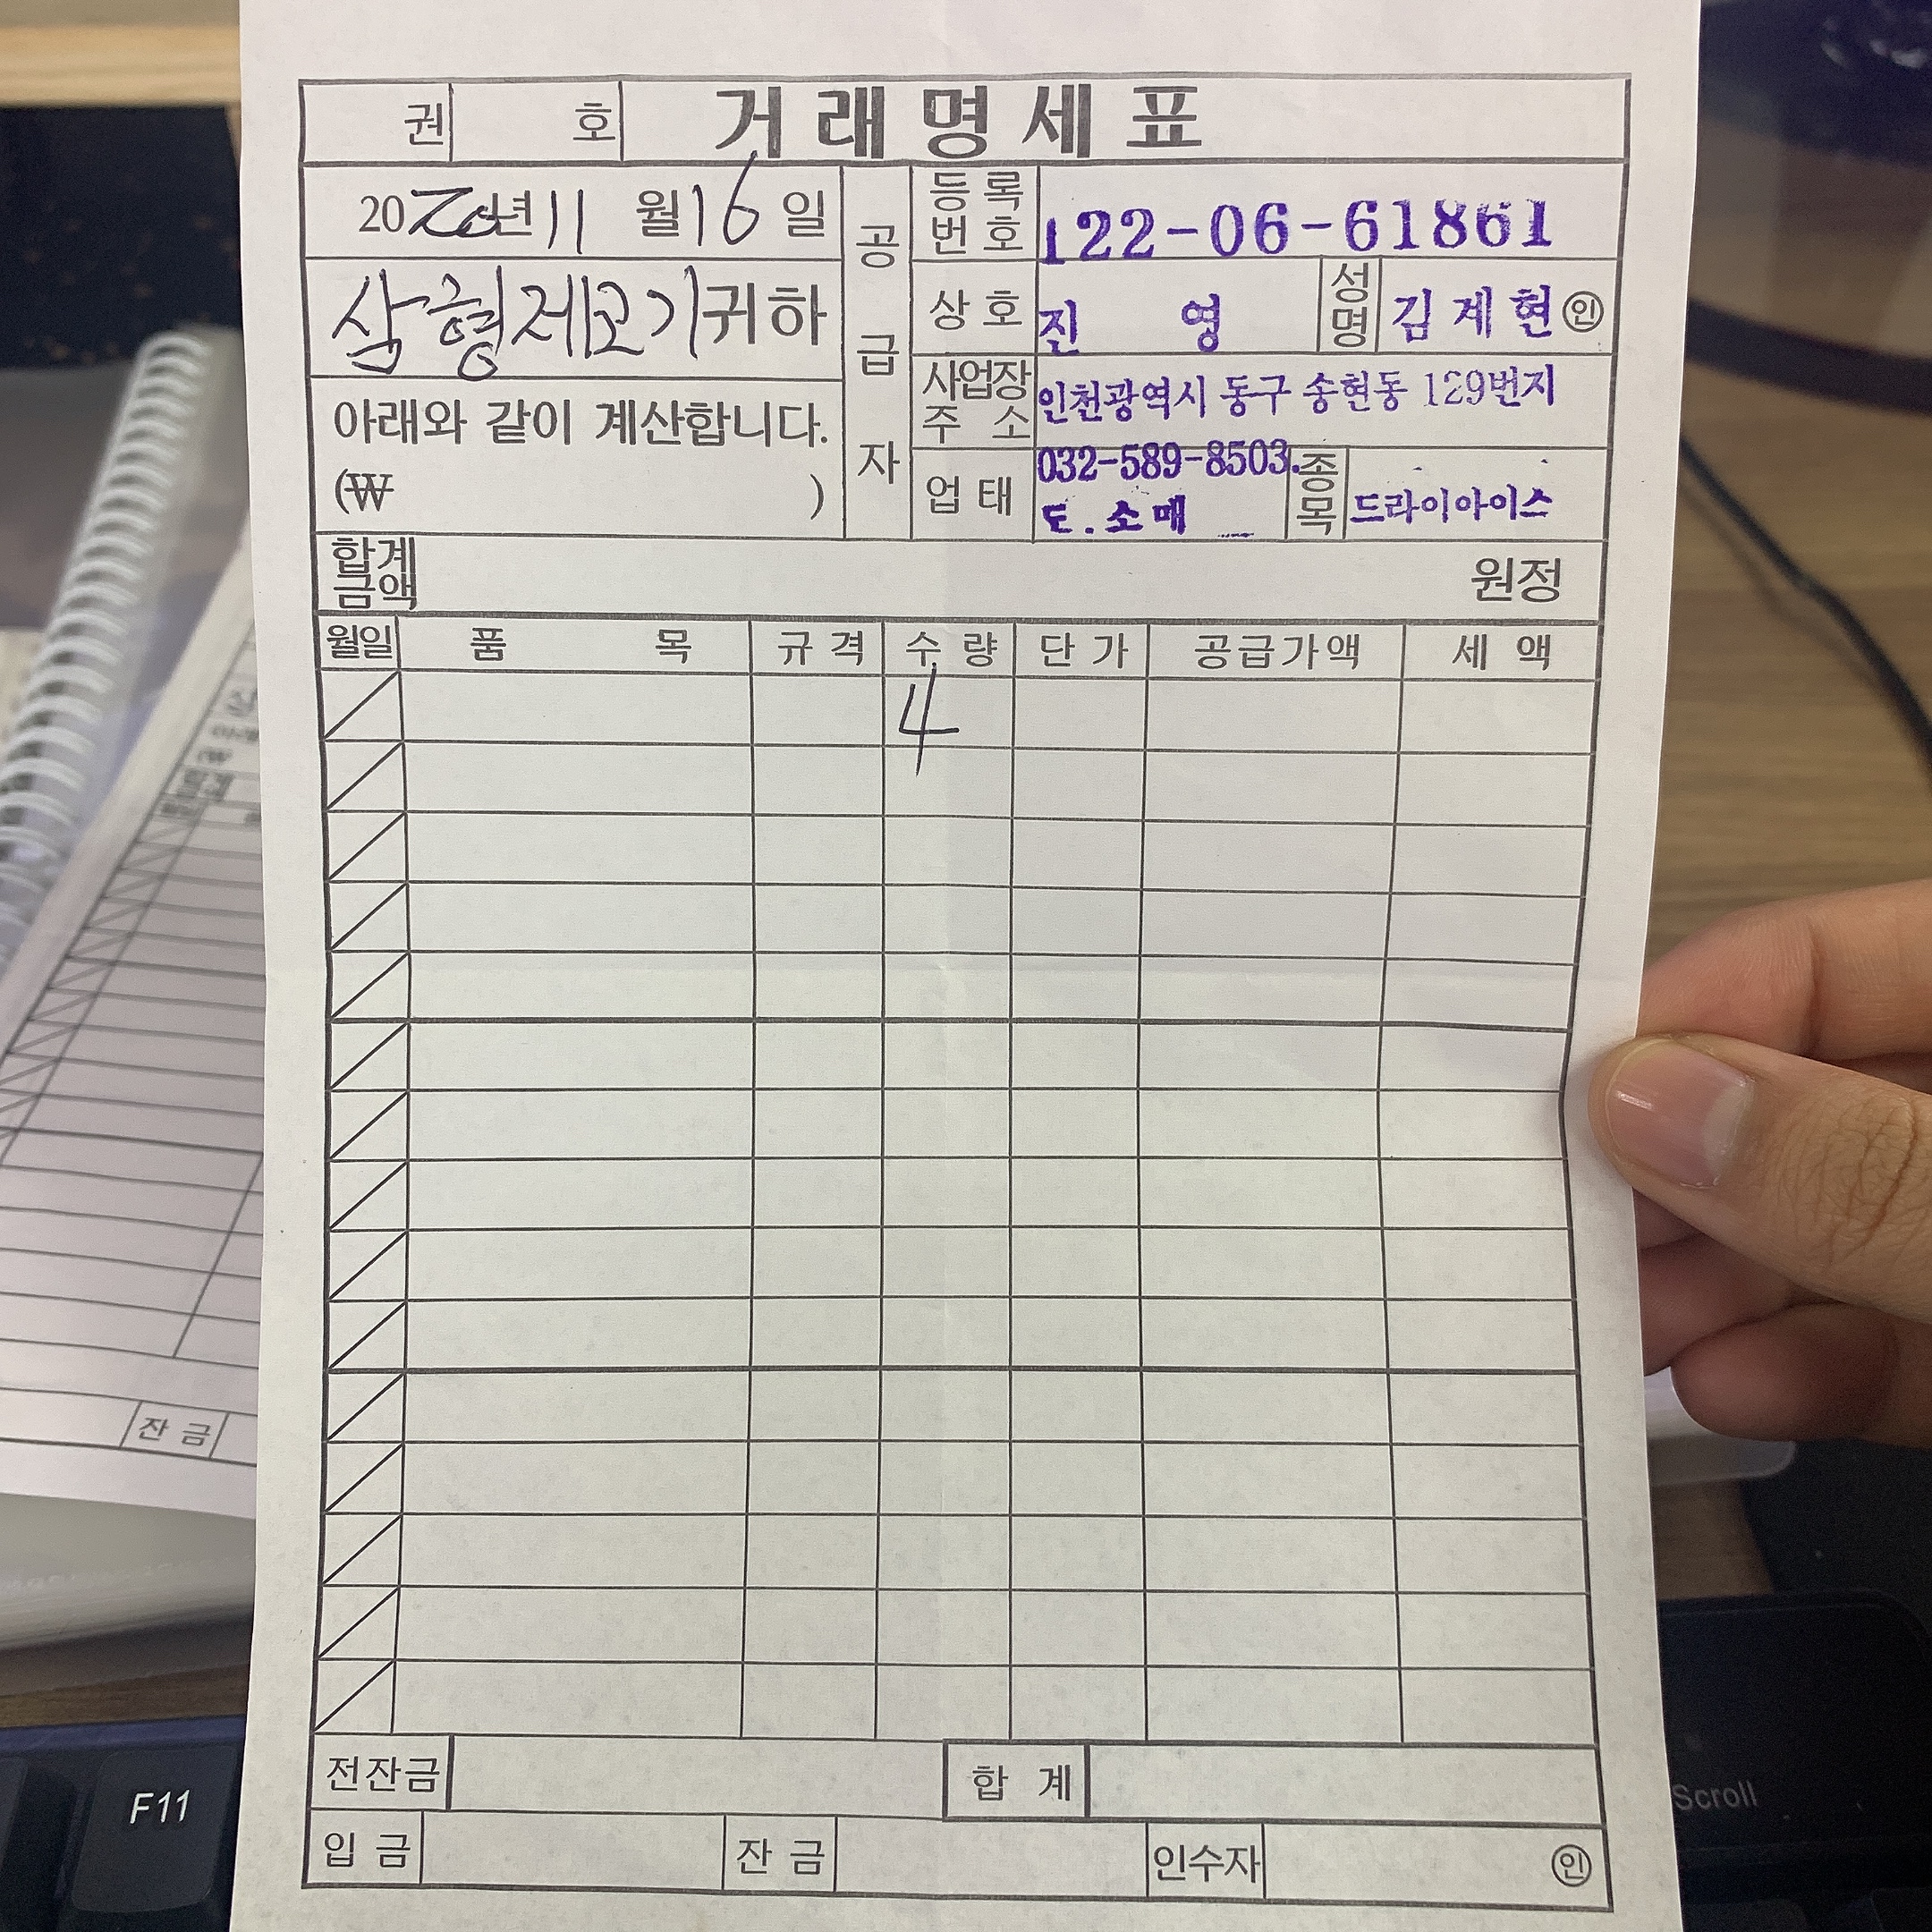 권 호 거래명세표
2020년 11월 16일
삼형제고기 귀하
아래와 같이 계산합니다.
(₩ )
공급자
등록번호 122-06-61861
상호 진 영 성명 김계현 ㊞
사업장주소 인천광역시 동구 송현동 129번지
032-589-8503.
업태 도.소매 종목 드라이아이스
합계금액 원정
월일 품 목 규격 수량 단가 공급가액 세액
4
전잔금 합 계
입금 잔금 인수자 ㊞
잔금
F11
Scroll